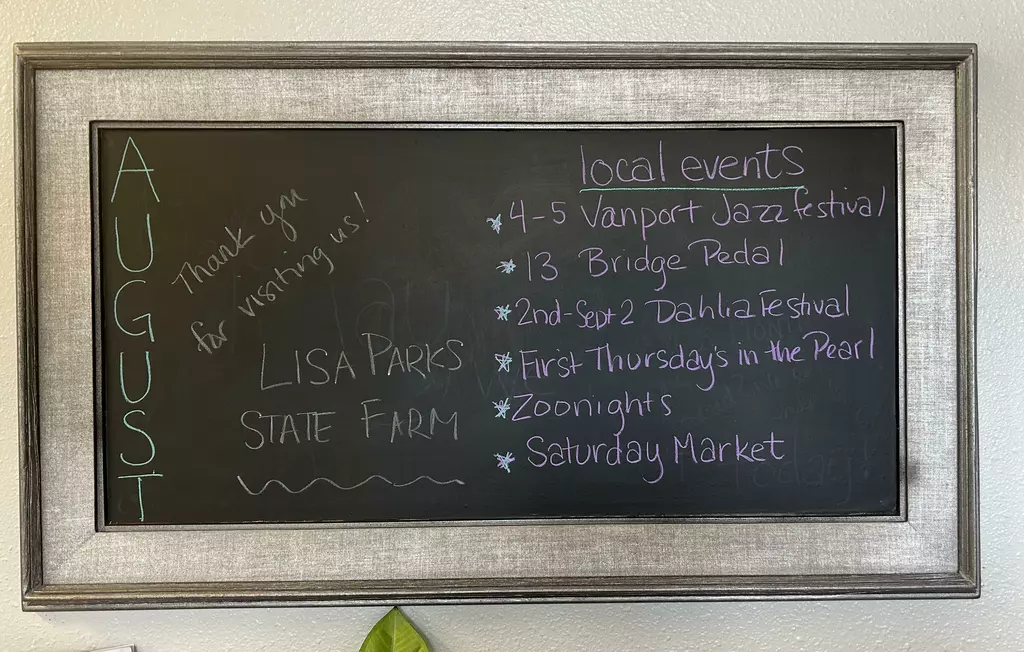 AUGUST
Thank you
for visiting us!
LISA PARKS
STATE FARM
local events
4-5 Vanport Jazz festival
13 Bridge Pedal
2nd-Sept 2 Dahlia Festival
First Thursday's in the Pearl
Zoonights
Saturday Market